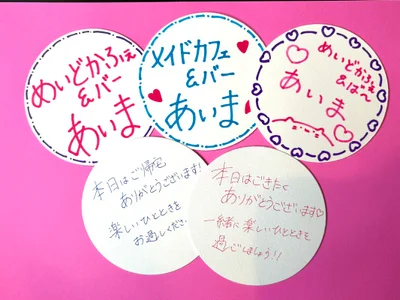 めいどかふぇ
&バー
あいま
メイドカフェ
&バー
あいま
めいどかふぇ
&ばー
あいま
本日はご帰宅
ありがとうございます!
楽しいひとときを
お過しください
本日はごきたく
ありがとうございます♡
一緒に楽しいひとときを
過ごしましょう!!